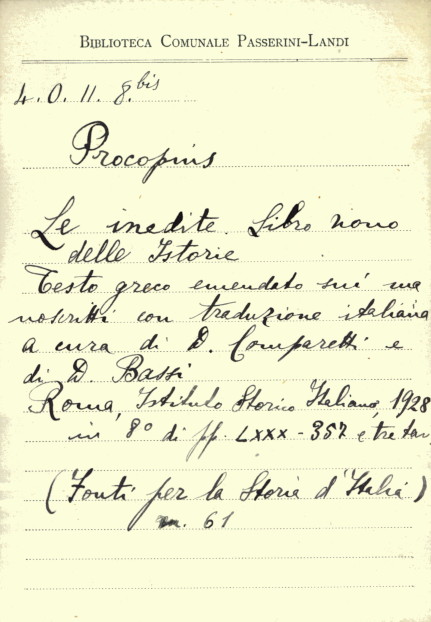 BIBLIOTECA COMUNALE PASSERINI-LANDI
4. O. II. 8.bis
Procopius
Le inedite. Libro nono
delle Istorie
Testo greco emendato sui ma
noscritti con traduzione italiana
a cura di D. Comparetti e
di D. Bassi
Roma, Istituto Storico Italiano, 1928
in 8° di pp. LXXX-357 e tre tav.
(Fonti per la Storia d'Italia)
n. 61